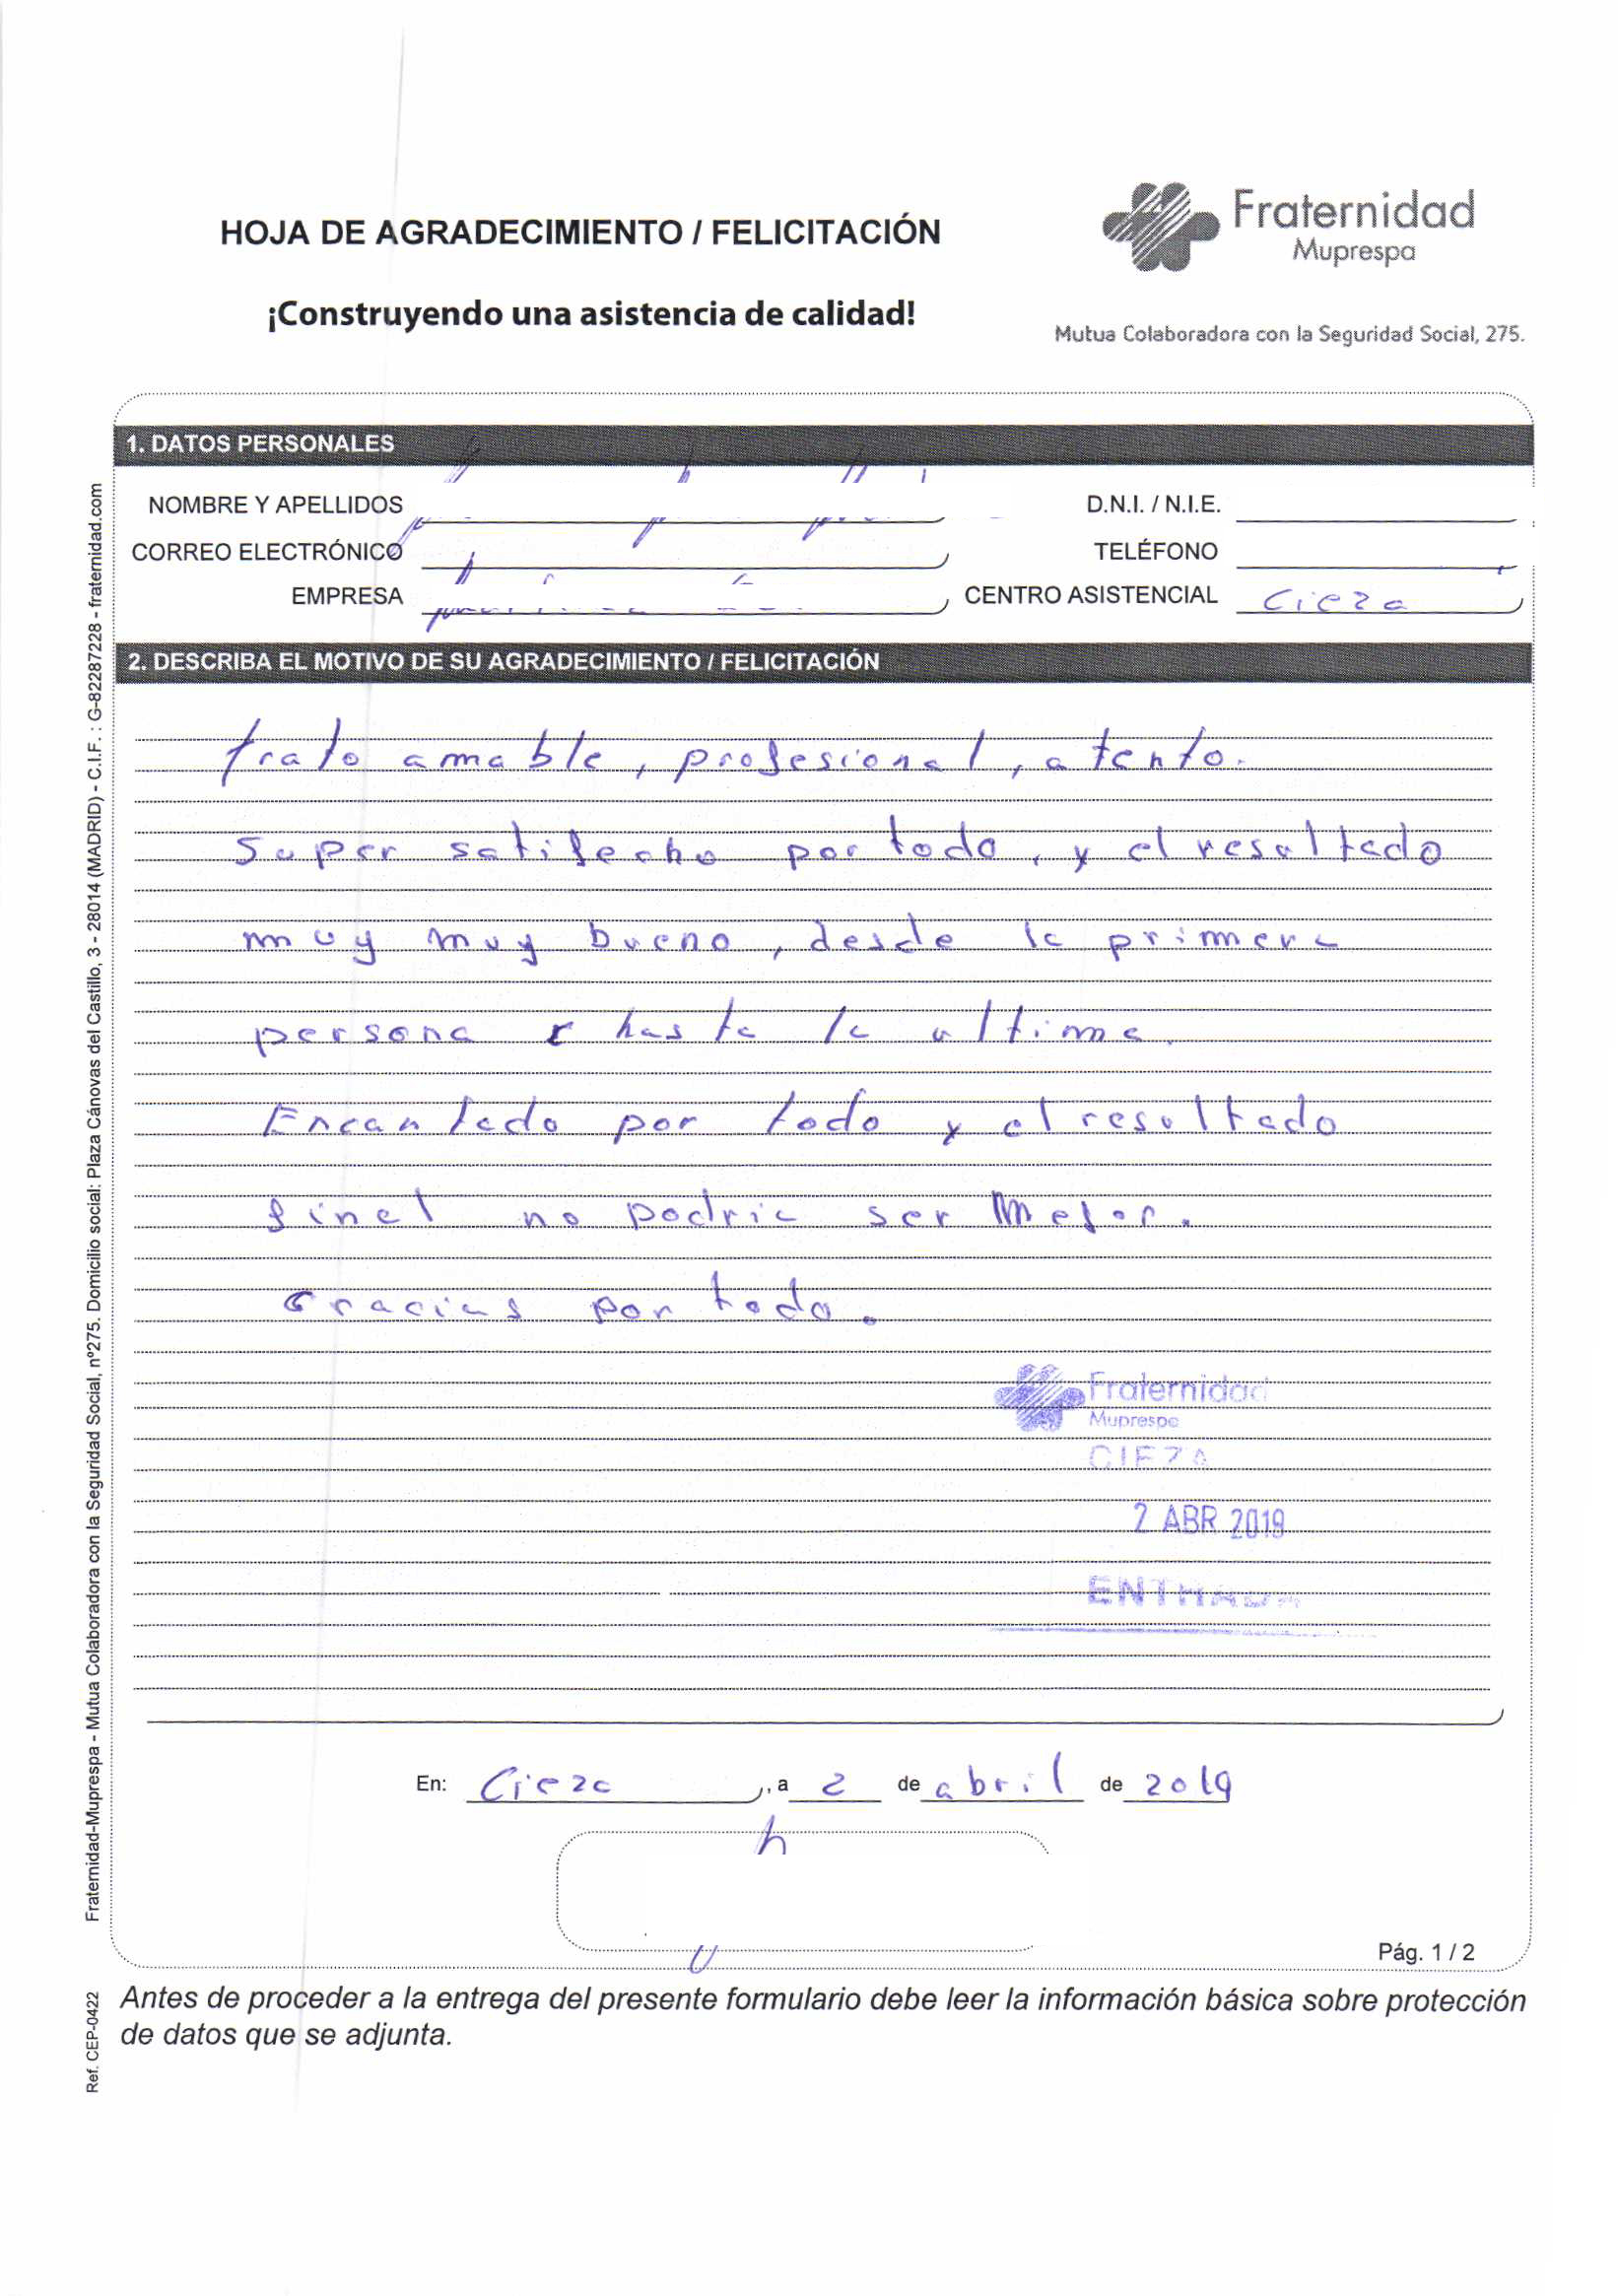 HOJA DE AGRADECIMIENTO / FELICITACIÓN
¡Construyendo una asistencia de calidad!
Fraternidad
Muprespa
Mutua Colaboradora con la Seguridad Social, 275.
1. DATOS PERSONALES
NOMBRE Y APELLIDOS
D.N.I. / N.I.E.
CORREO ELECTRÓNICO
TELÉFONO
EMPRESA
CENTRO ASISTENCIAL Cieza
2. DESCRIBA EL MOTIVO DE SU AGRADECIMIENTO / FELICITACIÓN
trato amable, profesional, atento.
Super satifecho por todo, y el resultado
muy muy bueno, desde la primera
persona hasta la ultima.
Encantado por todo y el resultado
final no podria ser Mejor.
Gracias por todo.
Fraternidad
Muprespa
CIEZA
2 ABR 2019
ENTRADA
En: Cieza, a 2 de abril de 2019
Pág. 1 / 2
Antes de proceder a la entrega del presente formulario debe leer la información básica sobre protección
de datos que se adjunta.
Fraternidad-Muprespa - Mutua Colaboradora con la Seguridad Social, nº275. Domicilio social: Plaza Cánovas del Castillo, 3 - 28014 (MADRID) - C.I.F. : G-82287228 - fraternidad.com
Ref. CEP-0422